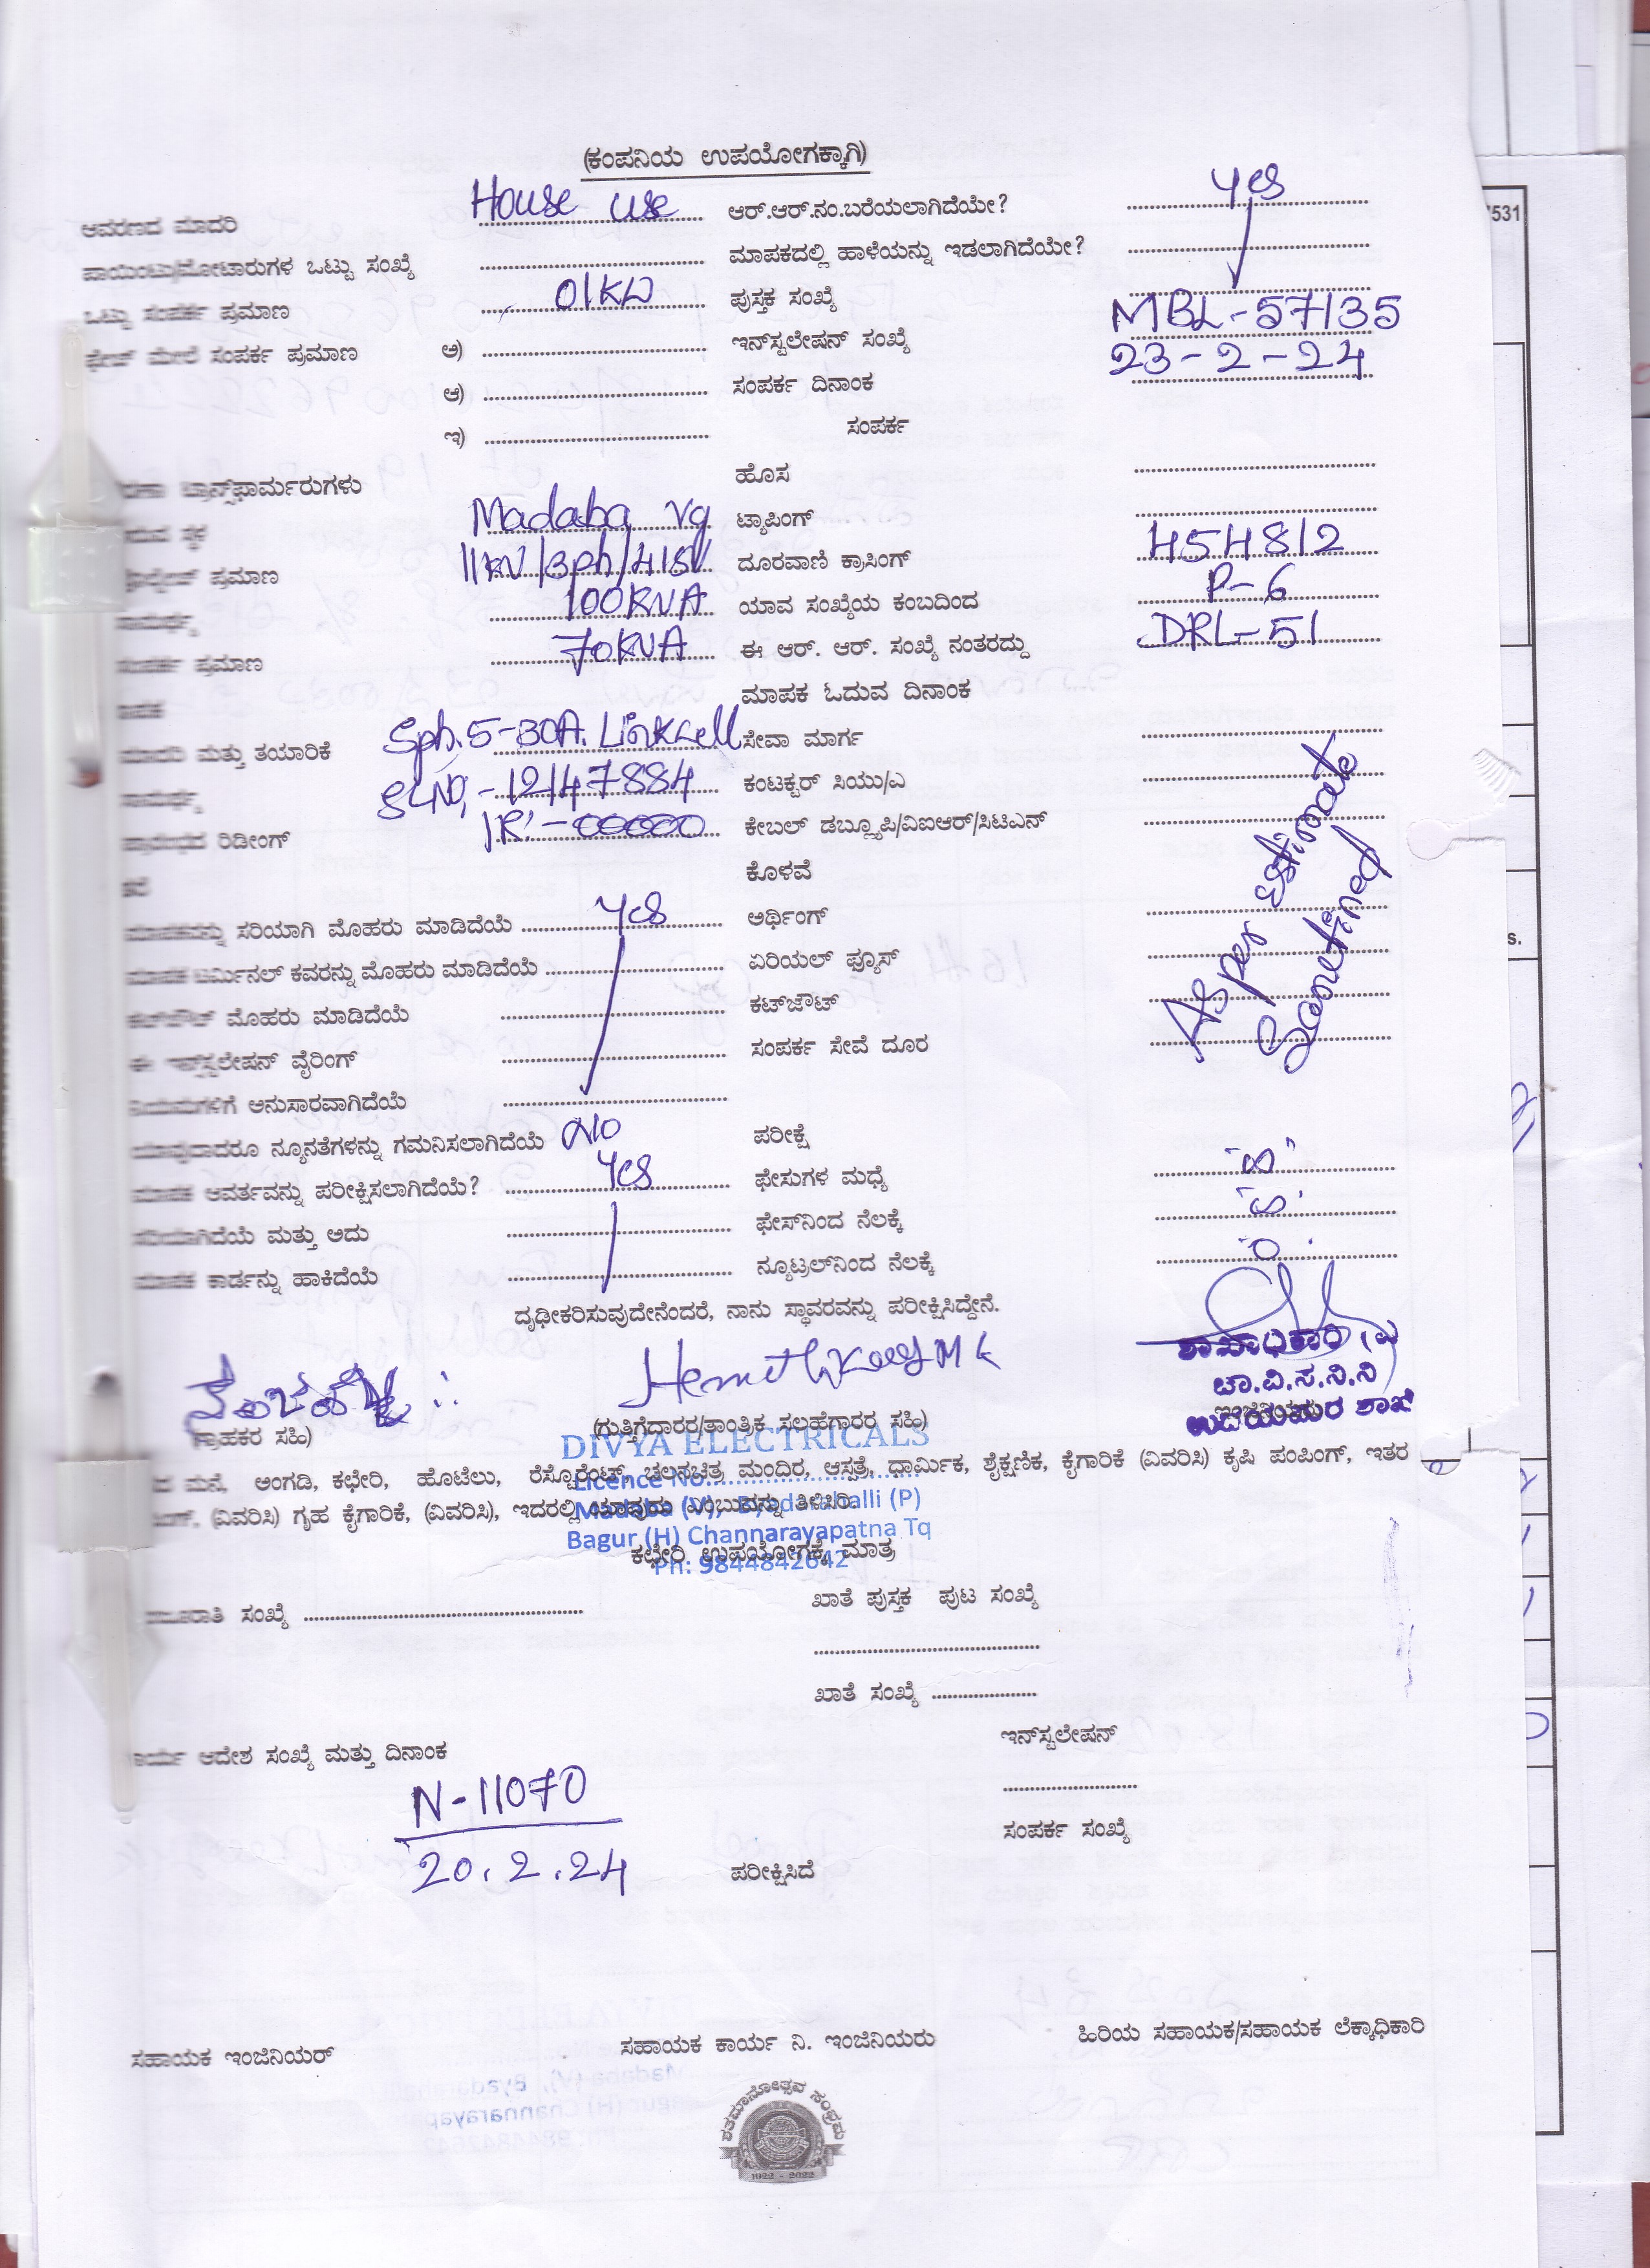 (ಕಂಪನಿಯ ಉಪಯೋಗಕ್ಕಾಗಿ)
ಆವರಣದ ಮಾದರಿ House use ಆರ್.ಆರ್.ನಂ.ಬರೆಯಲಾಗಿದೆಯೇ? Yes
ಪಾಯಿಂಟು/ಮೋಟಾರುಗಳ ಒಟ್ಟು ಸಂಖ್ಯೆ ಮಾಪಕದಲ್ಲಿ ಹಾಳೆಯನ್ನು ಇಡಲಾಗಿದೆಯೇ?
ಒಟ್ಟು ಸಂಪರ್ಕ ಪ್ರಮಾಣ 01KW ಪುಸ್ತಕ ಸಂಖ್ಯೆ
ಫೇಜ್ ಮೇಲೆ ಸಂಪರ್ಕ ಪ್ರಮಾಣ ಅ) ಇನ್‌ಸ್ಟಲೇಷನ್ ಸಂಖ್ಯೆ MBL-57135
ಆ) ಸಂಪರ್ಕ ದಿನಾಂಕ 23-2-24
ಇ) ಸಂಪರ್ಕ
ಟ್ರಾನ್ಸ್‌ಫಾರ್ಮರುಗಳು ಹೊಸ
ಸ್ಥಳ Madaba Vg ಟ್ಯಾಪಿಂಗ್
ಪ್ರಮಾಣ 11KV/3ph/415V ದೂರವಾಣಿ ಕ್ರಾಸಿಂಗ್ 454812
100KVA ಯಾವ ಸಂಖ್ಯೆಯ ಕಂಬದಿಂದ P-6
ಸಂಪರ್ಕ ಪ್ರಮಾಣ 70KVA ಈ ಆರ್. ಆರ್. ಸಂಖ್ಯೆ ನಂತರದ್ದು DRL-51
ಮಾಪಕ ಓದುವ ದಿನಾಂಕ
ಮಾದರಿ ಮತ್ತು ತಯಾರಿಕೆ Sph.5-30A. Linkwell ಸೇವಾ ಮಾರ್ಗ
SLNO:-12147884 ಕಂಟಕ್ಟರ್ ಸಿಯು/ಎ
ರಿಡೀಂಗ್ IR:-00000 ಕೇಬಲ್ ಡಬ್ಲ್ಯೂಪಿ/ವಿಐಆರ್/ಸಿಟಿಎನ್
ಕೊಳವೆ
ಮಾಪಕವನ್ನು ಸರಿಯಾಗಿ ಮೊಹರು ಮಾಡಿದೆಯೆ Yes ಅರ್ಥಿಂಗ್
ಮಾಪಕ ಟರ್ಮಿನಲ್ ಕವರನ್ನು ಮೊಹರು ಮಾಡಿದೆಯೆ ಏರಿಯಲ್ ಫ್ಯೂಸ್
ಕಟ್‌ಔಟ್ ಮೊಹರು ಮಾಡಿದೆಯೆ ಕಟ್‌ಔಟ್
ಈ ಇನ್ಸ್ಟಲೇಷನ್ ವೈರಿಂಗ್ ಸಂಪರ್ಕ ಸೇವೆ ದೂರ
As per estimate
Sanctined
ನಿಯಮಗಳಿಗೆ ಅನುಸಾರವಾಗಿದೆಯೆ
ಯಾವುದಾದರೂ ನ್ಯೂನತೆಗಳನ್ನು ಗಮನಿಸಲಾಗಿದೆಯೆ NO ಪರೀಕ್ಷೆ
ಮಾಪಕ ಆವರ್ತವನ್ನು ಪರೀಕ್ಷಿಸಲಾಗಿದೆಯೆ? Yes ಫೇಸುಗಳ ಮಧ್ಯೆ
ಸರಿಯಾಗಿದೆಯೆ ಮತ್ತು ಅದು ಫೇಸ್‌ನಿಂದ ನೆಲಕ್ಕೆ
ಮಾಪಕ ಕಾರ್ಡನ್ನು ಹಾಕಿದೆಯೆ ನ್ಯೂಟ್ರಲ್‌ನಿಂದ ನೆಲಕ್ಕೆ
ದೃಢೀಕರಿಸುವುದೇನೆಂದರೆ, ನಾನು ಸ್ಥಾವರವನ್ನು ಪರೀಕ್ಷಿಸಿದ್ದೇನೆ.
ಶಾಖಾಧಿಕಾರಿ (ವಿ)
ಚಾ.ವಿ.ಸ.ನಿ.ನಿ
ಉದಯಪುರ ಶಾಖೆ
(ಗ್ರಾಹಕರ ಸಹಿ) (ಗುತ್ತಿಗೆದಾರರ/ತಾಂತ್ರಿಕ ಸಲಹೆಗಾರರ ಸಹಿ)
DIVYA ELECTRICALS
ಮನೆ, ಅಂಗಡಿ, ಕಛೇರಿ, ಹೊಟೆಲು, ರೆಸ್ಟೋರೆಂಟ್, ಚಲನಚಿತ್ರ ಮಂದಿರ, ಆಸ್ಪತ್ರೆ, ಧಾರ್ಮಿಕ, ಶೈಕ್ಷಣಿಕ, ಕೈಗಾರಿಕೆ (ವಿವರಿಸಿ) ಕೃಷಿ ಪಂಪಿಂಗ್, ಇತರ
Licence No.
(ವಿವರಿಸಿ) ಗೃಹ ಕೈಗಾರಿಕೆ, (ವಿವರಿಸಿ), ಇದರಲ್ಲಿ ಯಾವುದು ಎಂಬುದನ್ನು ತಿಳಿಸಿರಿ.
Madaba (V), Byadarahalli (P)
Bagur (H) Channarayapatna Tq
ಕಛೇರಿ ಉಪಯೋಗಕ್ಕೆ ಮಾತ್ರ
Ph: 9844842642
ಸಂಖ್ಯೆ ಖಾತೆ ಪುಸ್ತಕ ಪುಟ ಸಂಖ್ಯೆ
ಖಾತೆ ಸಂಖ್ಯೆ
ಇನ್‌ಸ್ಟಲೇಷನ್
ಕಾರ್ಯ ಆದೇಶ ಸಂಖ್ಯೆ ಮತ್ತು ದಿನಾಂಕ
N-11070
ಸಂಪರ್ಕ ಸಂಖ್ಯೆ
20.2.24 ಪರೀಕ್ಷಿಸಿದೆ
ಸಹಾಯಕ ಇಂಜಿನಿಯರ್ ಸಹಾಯಕ ಕಾರ್ಯ ನಿ. ಇಂಜಿನಿಯರು ಹಿರಿಯ ಸಹಾಯಕ/ಸಹಾಯಕ ಲೆಕ್ಕಾಧಿಕಾರಿ
ಶತಮಾನೋತ್ಸವ ಸಂಭ್ರಮ
1922 - 2022